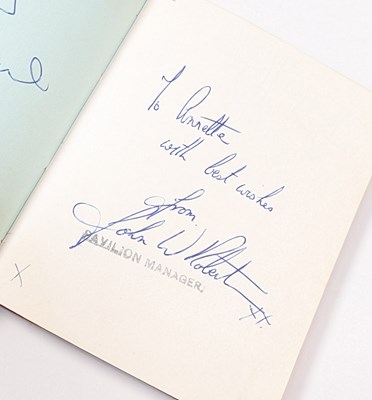 To Annette
with best wishes
from
John W Robert
PAVILION MANAGER.
XX.
X